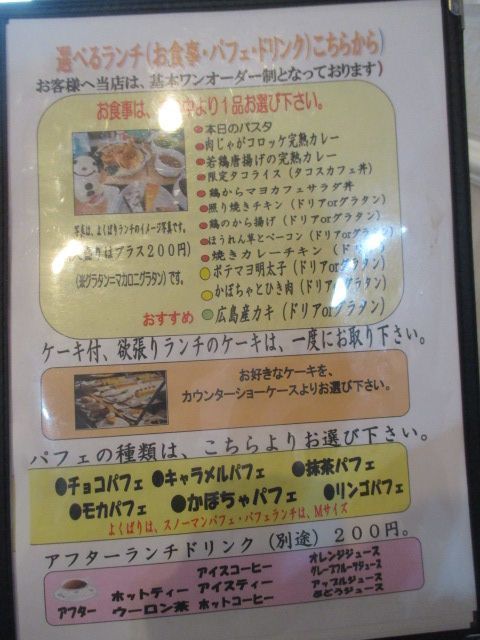 選べるランチ(お食事・パフェ・ドリンク)こちらから)
お客様へ当店は、基本ワンオーダー制となっております)
お食事は、中より1品お選び下さい。
本日のパスタ
肉じゃがコロッケ完熟カレー
若鶏唐揚げの完熟カレー
限定タコライス(タコスカフェ丼)
鶏からマヨカフェサラダ丼
照り焼きチキン(ドリアorグラタン)
鶏のから揚げ(ドリアorグラタン)
ほうれん草とベーコン(ドリアorグラタン)
焼きカレーチキン(ド
ポテマヨ明太子(ドリアorグラタン)
かぼちゃとひき肉(ドリアorグラタン)
おすすめ 広島産カキ(ドリアorグラタン)
写真は、よくばりランチのイメージ写真です。
はプラス200円)
(※グラタン=マカロニグラタン)です。
ケーキ付、欲張りランチのケーキは、一度にお取り下さい。
お好きなケーキを、
カウンターショーケースよりお選び下さい。
パフェの種類は、こちらよりお選び下さい。
●チョコパフェ ●キャラメルパフェ ●抹茶パフェ
●モカパフェ ●かぼちゃパフェ ●リンゴパフェ
よくばりは、スノーマンパフェ・パフェランチは、Mサイズ
アフターランチドリンク(別途)200円。
アイスコーヒー オレンジジュース
ホットティー アイスティー グレープフルーツジュース
アップルジュース
アフター ウーロン茶 ホットコーヒー ぶどうジュース